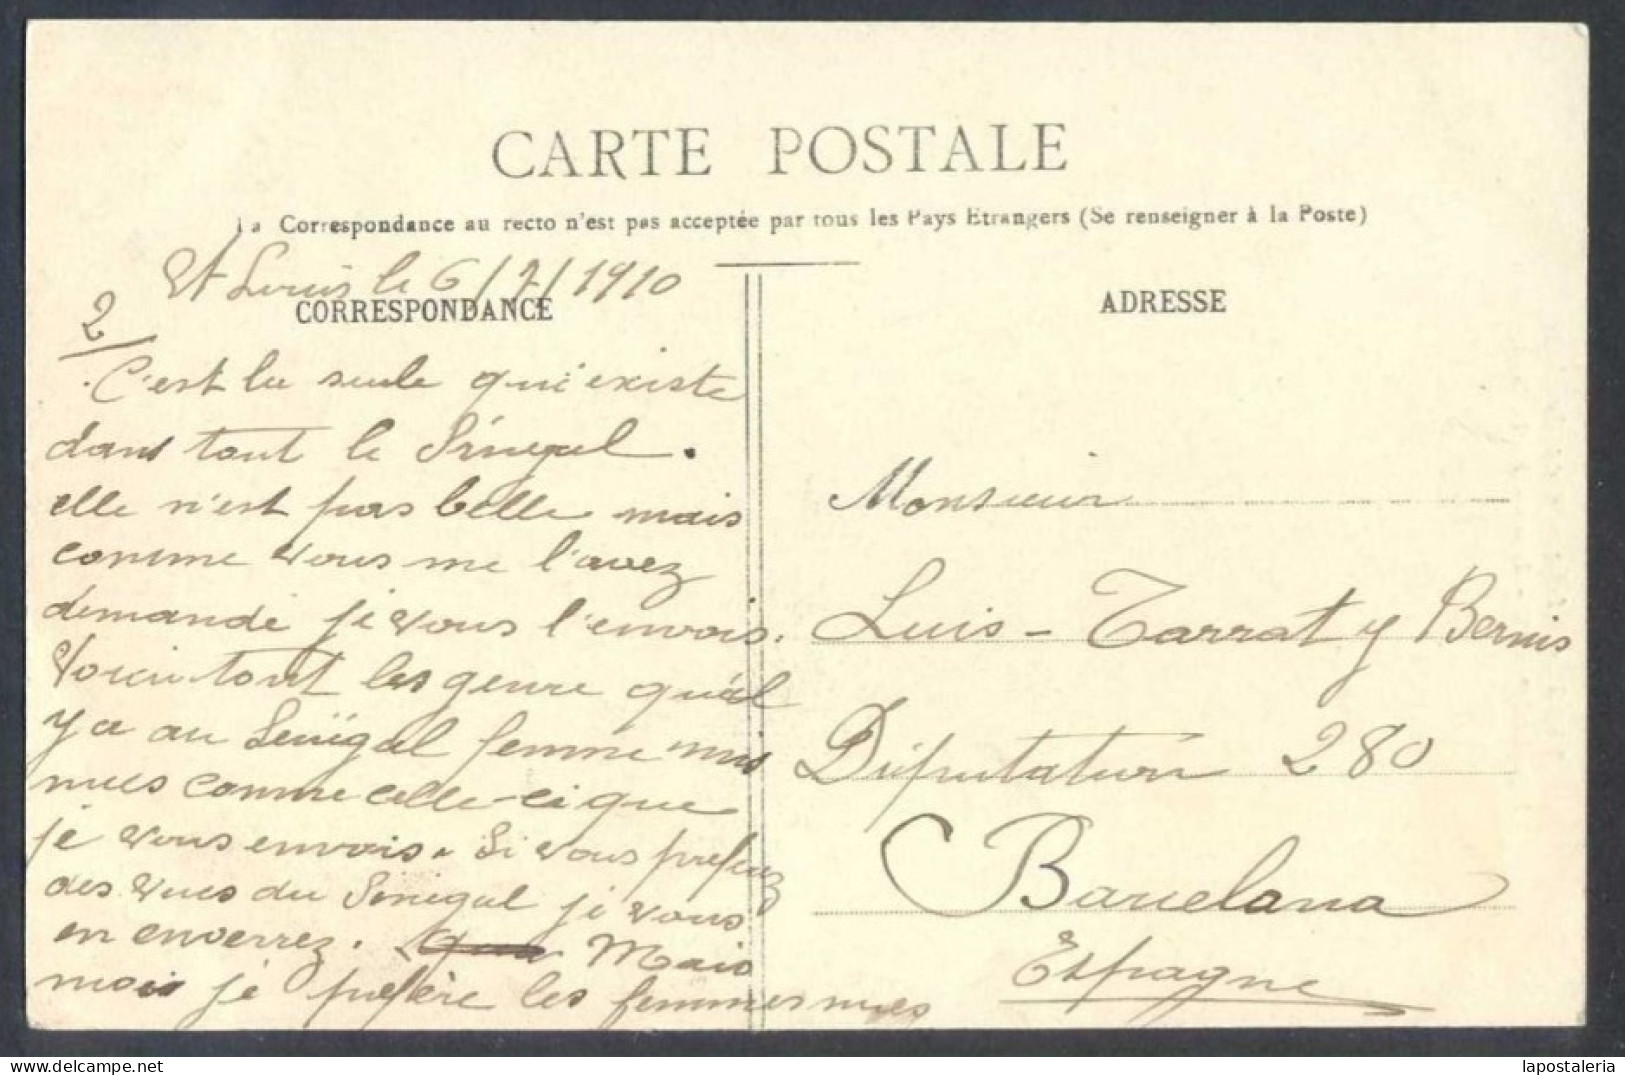 CARTE POSTALE
La Correspondance au recto n'est pas acceptée par tous les Pays Etrangers (Se renseigner à la Poste)
St Louis le 6/7/1910
CORRESPONDANCE
2/
C'est la seule qui existe
dans tout le Sénégal.
elle n'est pas belle mais
comme vous me l'avez
demandé je vous l'envois.
Voici tout les genre qu'il
y a au Sénégal femme mis
nues comme celle-ci que
je vous envois. Si vous preferez
des vues du Sénégal je vous
en enverrez. Mais
moi je préfère les femmes nues
ADRESSE
Monsieur
Luis - Tarrat y Bernis
Diputation 280
Barcelona
Espagne
delcampe.net
lapostaleria